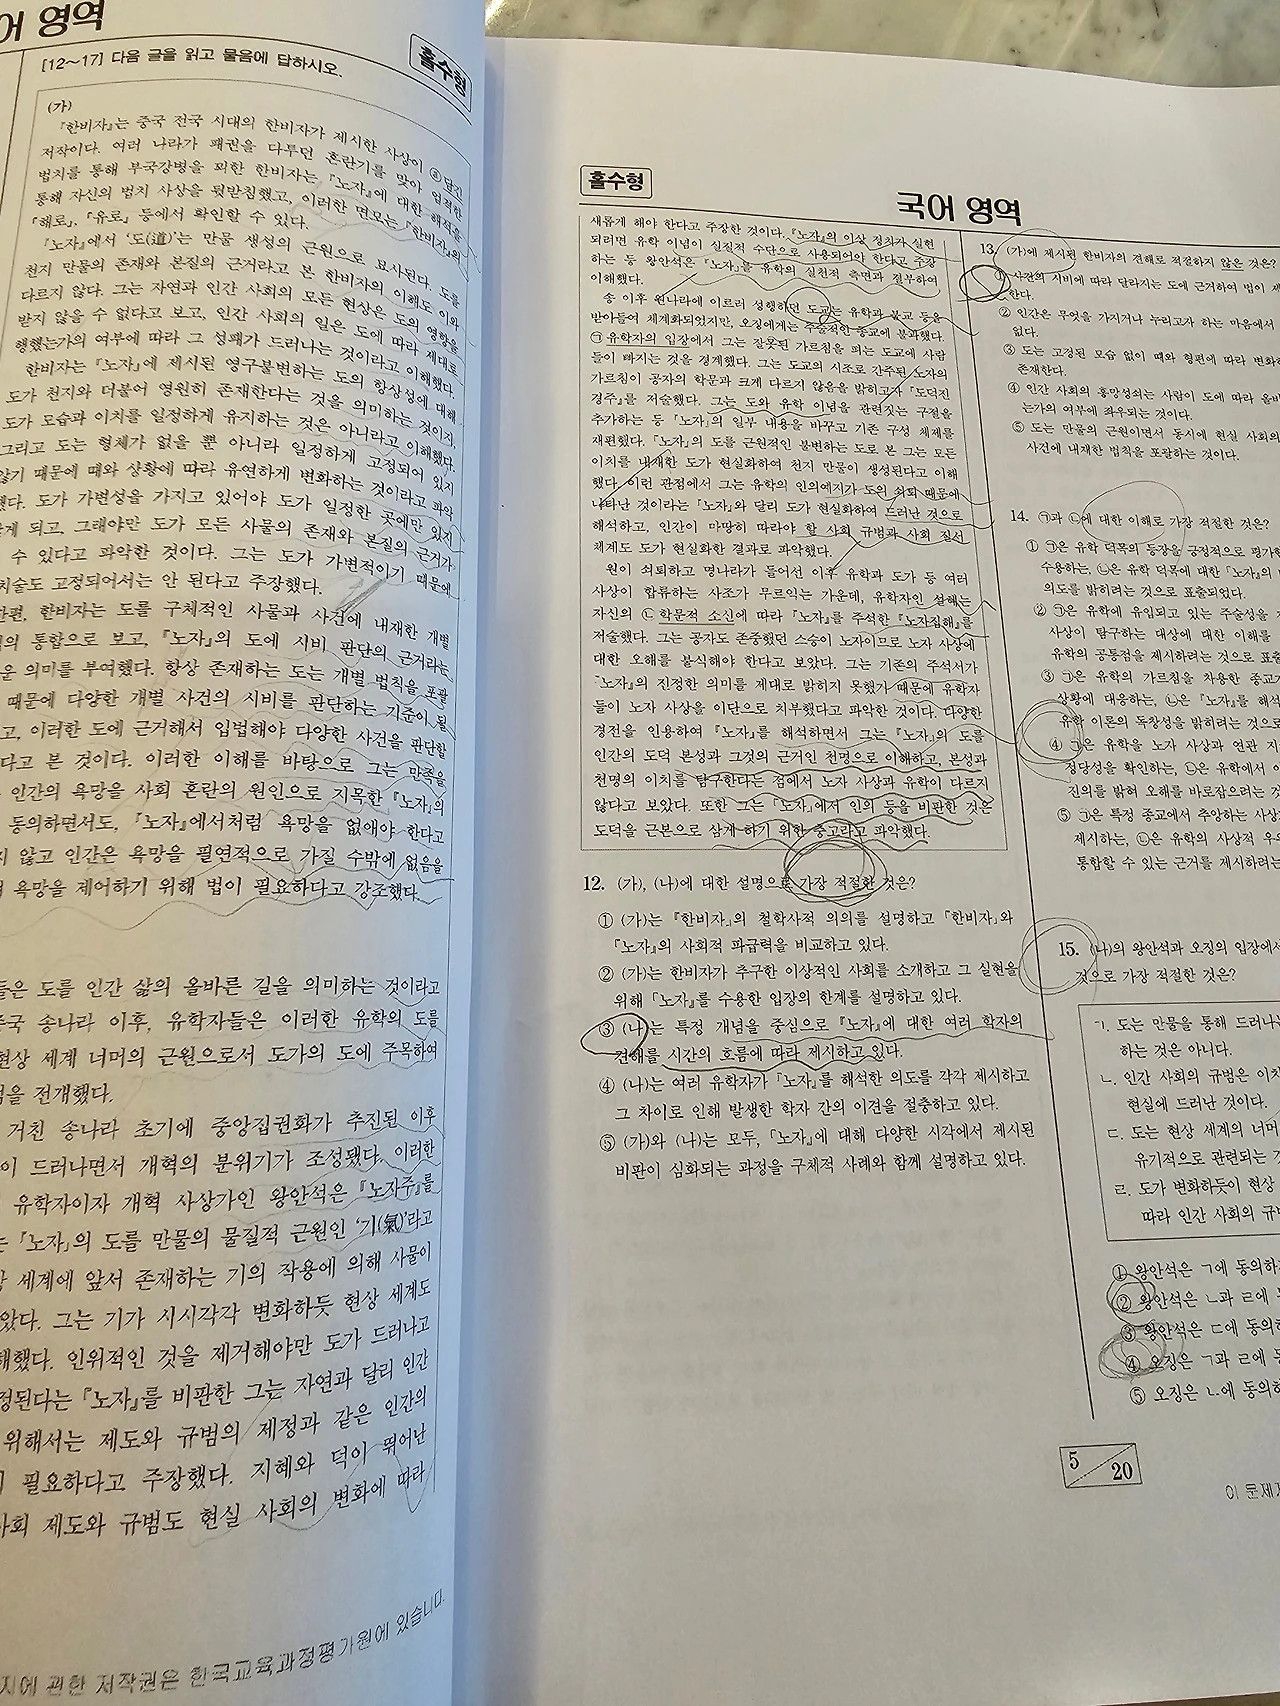 어 영역
홀수형
[12～17] 다음 글을 읽고 물음에 답하시오.
(가)
『한비자』는 중국 전국 시대의 한비자가 제시한 사상이 ⓐ담긴
저작이다. 여러 나라가 패권을 다투던 혼란기를 맞아 엄격한
법치를 통해 부국강병을 꾀한 한비자는 『노자』에 대한 해석을
통해 자신의 법치 사상을 뒷받침했고, 이러한 면모는 『한비자』의
「해로」, 「유로」 등에서 확인할 수 있다.
『노자』에서 ‘도(道)’는 만물 생성의 근원으로 묘사된다. 도를
천지 만물의 존재와 본질의 근거라고 본 한비자의 이해도 이와
다르지 않다. 그는 자연과 인간 사회의 모든 현상은 도의 영향을
받지 않을 수 없다고 보고, 인간 사회의 일은 도에 따라 제대로
행했는가의 여부에 따라 그 성패가 드러나는 것이라고 이해했다.
한비자는 『노자』에 제시된 영구불변하는 도의 항상성에 대해
도가 천지와 더불어 영원히 존재한다는 것을 의미하는 것이지,
도가 모습과 이치를 일정하게 유지하는 것은 아니라고 이해했다.
그리고 도는 형체가 없을 뿐 아니라 일정하게 고정되어 있지
않기 때문에 때와 상황에 따라 유연하게 변화하는 것이라고 파악
했다. 도가 가변성을 가지고 있어야 도가 일정한 곳에만 있지
않게 되고, 그래야만 도가 모든 사물의 존재와 본질의 근거가
수 있다고 파악한 것이다. 그는 도가 가변적이기 때문에
치술도 고정되어서는 안 된다고 주장했다.
한편, 한비자는 도를 구체적인 사물과 사건에 내재한 개별
의 통합으로 보고, 『노자』의 도에 시비 판단의 근거라는
운 의미를 부여했다. 항상 존재하는 도는 개별 법칙을 포괄
때문에 다양한 개별 사건의 시비를 판단하는 기준이 될
고, 이러한 도에 근거해서 입법해야 다양한 사건을 판단할
다고 본 것이다. 이러한 이해를 바탕으로 그는 만족을
인간의 욕망을 사회 혼란의 원인으로 지목한 『노자』의
동의하면서도, 『노자』에서처럼 욕망을 없애야 한다고
지 않고 인간은 욕망을 필연적으로 가질 수밖에 없음을
욕망을 제어하기 위해 법이 필요하다고 강조했다.
들은 도를 인간 삶의 올바른 길을 의미하는 것이라고
중국 송나라 이후, 유학자들은 이러한 유학의 도를
현상 세계 너머의 근원으로서 도가의 도에 주목하여
을 전개했다.
거친 송나라 초기에 중앙집권화가 추진된 이후
이 드러나면서 개혁의 분위기가 조성됐다. 이러한
유학자이자 개혁 사상가인 왕안석은 『노자주』를
는 『노자』의 도를 만물의 물질적 근원인 ‘기(氣)’라고
상 세계에 앞서 존재하는 기의 작용에 의해 사물이
았다. 그는 기가 시시각각 변화하듯 현상 세계도
해했다. 인위적인 것을 제거해야만 도가 드러나고
정된다는 『노자』를 비판한 그는 자연과 달리 인간
위해서는 제도와 규범의 제정과 같은 인간의
이 필요하다고 주장했다. 지혜와 덕이 뛰어난
사회 제도와 규범도 현실 사회의 변화에 따라
지에 관한 저작권은 한국교육과정평가원에 있습니다.
홀수형
국어 영역
새롭게 해야 한다고 주장한 것이다. 『노자』의 이상 정치가 실현
되려면 유학 이념이 실질적 수단으로 사용되어야 한다고 주장
하는 등 왕안석은 『노자』를 유학의 실천적 측면과 결부하여
이해했다.
송 이후 원나라에 이르러 성행하던 도교는 유학과 불교 등을
받아들여 체계화되었지만, 오징에게는 주술적인 종교에 불과했다.
㉠유학자의 입장에서 그는 잘못된 가르침을 펴는 도교에 사람
들이 빠지는 것을 경계했다. 그는 도교의 시조로 간주된 노자의
가르침이 공자의 학문과 크게 다르지 않음을 밝히고자 『도덕진
경주』를 저술했다. 그는 도와 유학 이념을 관련짓는 구절을
추가하는 등 『노자』의 일부 내용을 바꾸고 기존 구성 체제를
재편했다. 『노자』의 도를 근원적인 불변하는 도로 본 그는 모든
이치를 내재한 도가 현실화하여 천지 만물이 생성된다고 이해
했다. 이런 관점에서 그는 유학의 인의예지가 도의 쇠퇴 때문에
나타난 것이라는 『노자』와 달리 도가 현실화하여 드러난 것으로
해석하고, 인간이 마땅히 따라야 할 사회 규범과 사회 질서
체계도 도가 현실화한 결과로 파악했다.
원이 쇠퇴하고 명나라가 들어선 이후 유학과 도가 등 여러
사상이 합류하는 사조가 무르익는 가운데, 유학자인 설혜는
자신의 ㉡학문적 소신에 따라 『노자』를 주석한 『노자집해』를
저술했다. 그는 공자도 존중했던 스승이 노자이므로 노자 사상에
대한 오해를 불식해야 한다고 보았다. 그는 기존의 주석서가
『노자』의 진정한 의미를 제대로 밝히지 못했기 때문에 유학자
들이 노자 사상을 이단으로 치부했다고 파악한 것이다. 다양한
경전을 인용하여 『노자』를 해석하면서 그는 『노자』의 도를
인간의 도덕 본성과 그것의 근거인 천명으로 이해하고, 본성과
천명의 이치를 탐구한다는 점에서 노자 사상과 유학이 다르지
않다고 보았다. 또한 그는 『노자』에서 인의 등을 비판한 것은
도덕을 근본으로 삼게 하기 위한 충고라고 파악했다.
12. (가), (나)에 대한 설명으로 가장 적절한 것은?
① (가)는 『한비자』의 철학사적 의의를 설명하고 『한비자』와
『노자』의 사회적 파급력을 비교하고 있다.
② (가)는 한비자가 추구한 이상적인 사회를 소개하고 그 실현을
위해 『노자』를 수용한 입장의 한계를 설명하고 있다.
③ (나)는 특정 개념을 중심으로 『노자』에 대한 여러 학자의
견해를 시간의 흐름에 따라 제시하고 있다.
④ (나)는 여러 유학자가 『노자』를 해석한 의도를 각각 제시하고
그 차이로 인해 발생한 학자 간의 이견을 절충하고 있다.
⑤ (가)와 (나)는 모두, 『노자』에 대해 다양한 시각에서 제시된
비판이 심화되는 과정을 구체적 사례와 함께 설명하고 있다.
13. (가)에 제시된 한비자의 견해로 적절하지 않은 것은?
① 사건의 시비에 따라 달라지는 도에 근거하여 법이 제
한다.
② 인간은 무엇을 가지거나 누리고자 하는 마음에서
없다.
③ 도는 고정된 모습 없이 때와 형편에 따라 변화하
존재한다.
④ 인간 사회의 흥망성쇠는 사람이 도에 따라 올바
는가의 여부에 좌우되는 것이다.
⑤ 도는 만물의 근원이면서 동시에 현실 사회의
사건에 내재한 법칙을 포괄하는 것이다.
14. ㉠과 ㉡에 대한 이해로 가장 적절한 것은?
① ㉠은 유학 덕목의 등장을 긍정적으로 평가한
수용하는, ㉡은 유학 덕목에 대한 『노자』의
의도를 밝히려는 것으로 표출되었다.
② ㉠은 유학에 유입되고 있는 주술성을 제
사상이 탐구하는 대상에 대한 이해를
유학의 공통점을 제시하려는 것으로 표출
③ ㉠은 유학의 가르침을 차용한 종교가
상황에 대응하는, ㉡은 『노자』를 해석
유학 이론의 독창성을 밝히려는 것으로
④ ㉠은 유학을 노자 사상과 연관 지
정당성을 확인하는, ㉡은 유학에서 이
진의를 밝혀 오해를 바로잡으려는 것
⑤ ㉠은 특정 종교에서 추앙하는 사상
제시하는, ㉡은 유학의 사상적 우
통합할 수 있는 근거를 제시하려는
15. (나)의 왕안석과 오징의 입장에서
것으로 가장 적절한 것은?
ㄱ. 도는 만물을 통해 드러나는
하는 것은 아니다.
ㄴ. 인간 사회의 규범은 이치
현실에 드러난 것이다.
ㄷ. 도는 현상 세계의 너머
유기적으로 관련되는
ㄹ. 도가 변화하듯이 현상
따라 인간 사회의 규범
① 왕안석은 ㄱ에 동의하
② 왕안석은 ㄴ과 ㄹ에
③ 왕안석은 ㄷ에 동의하
④ 오징은 ㄱ과 ㄹ에 동
⑤ 오징은 ㄴ에 동의하
5
20
이 문제지